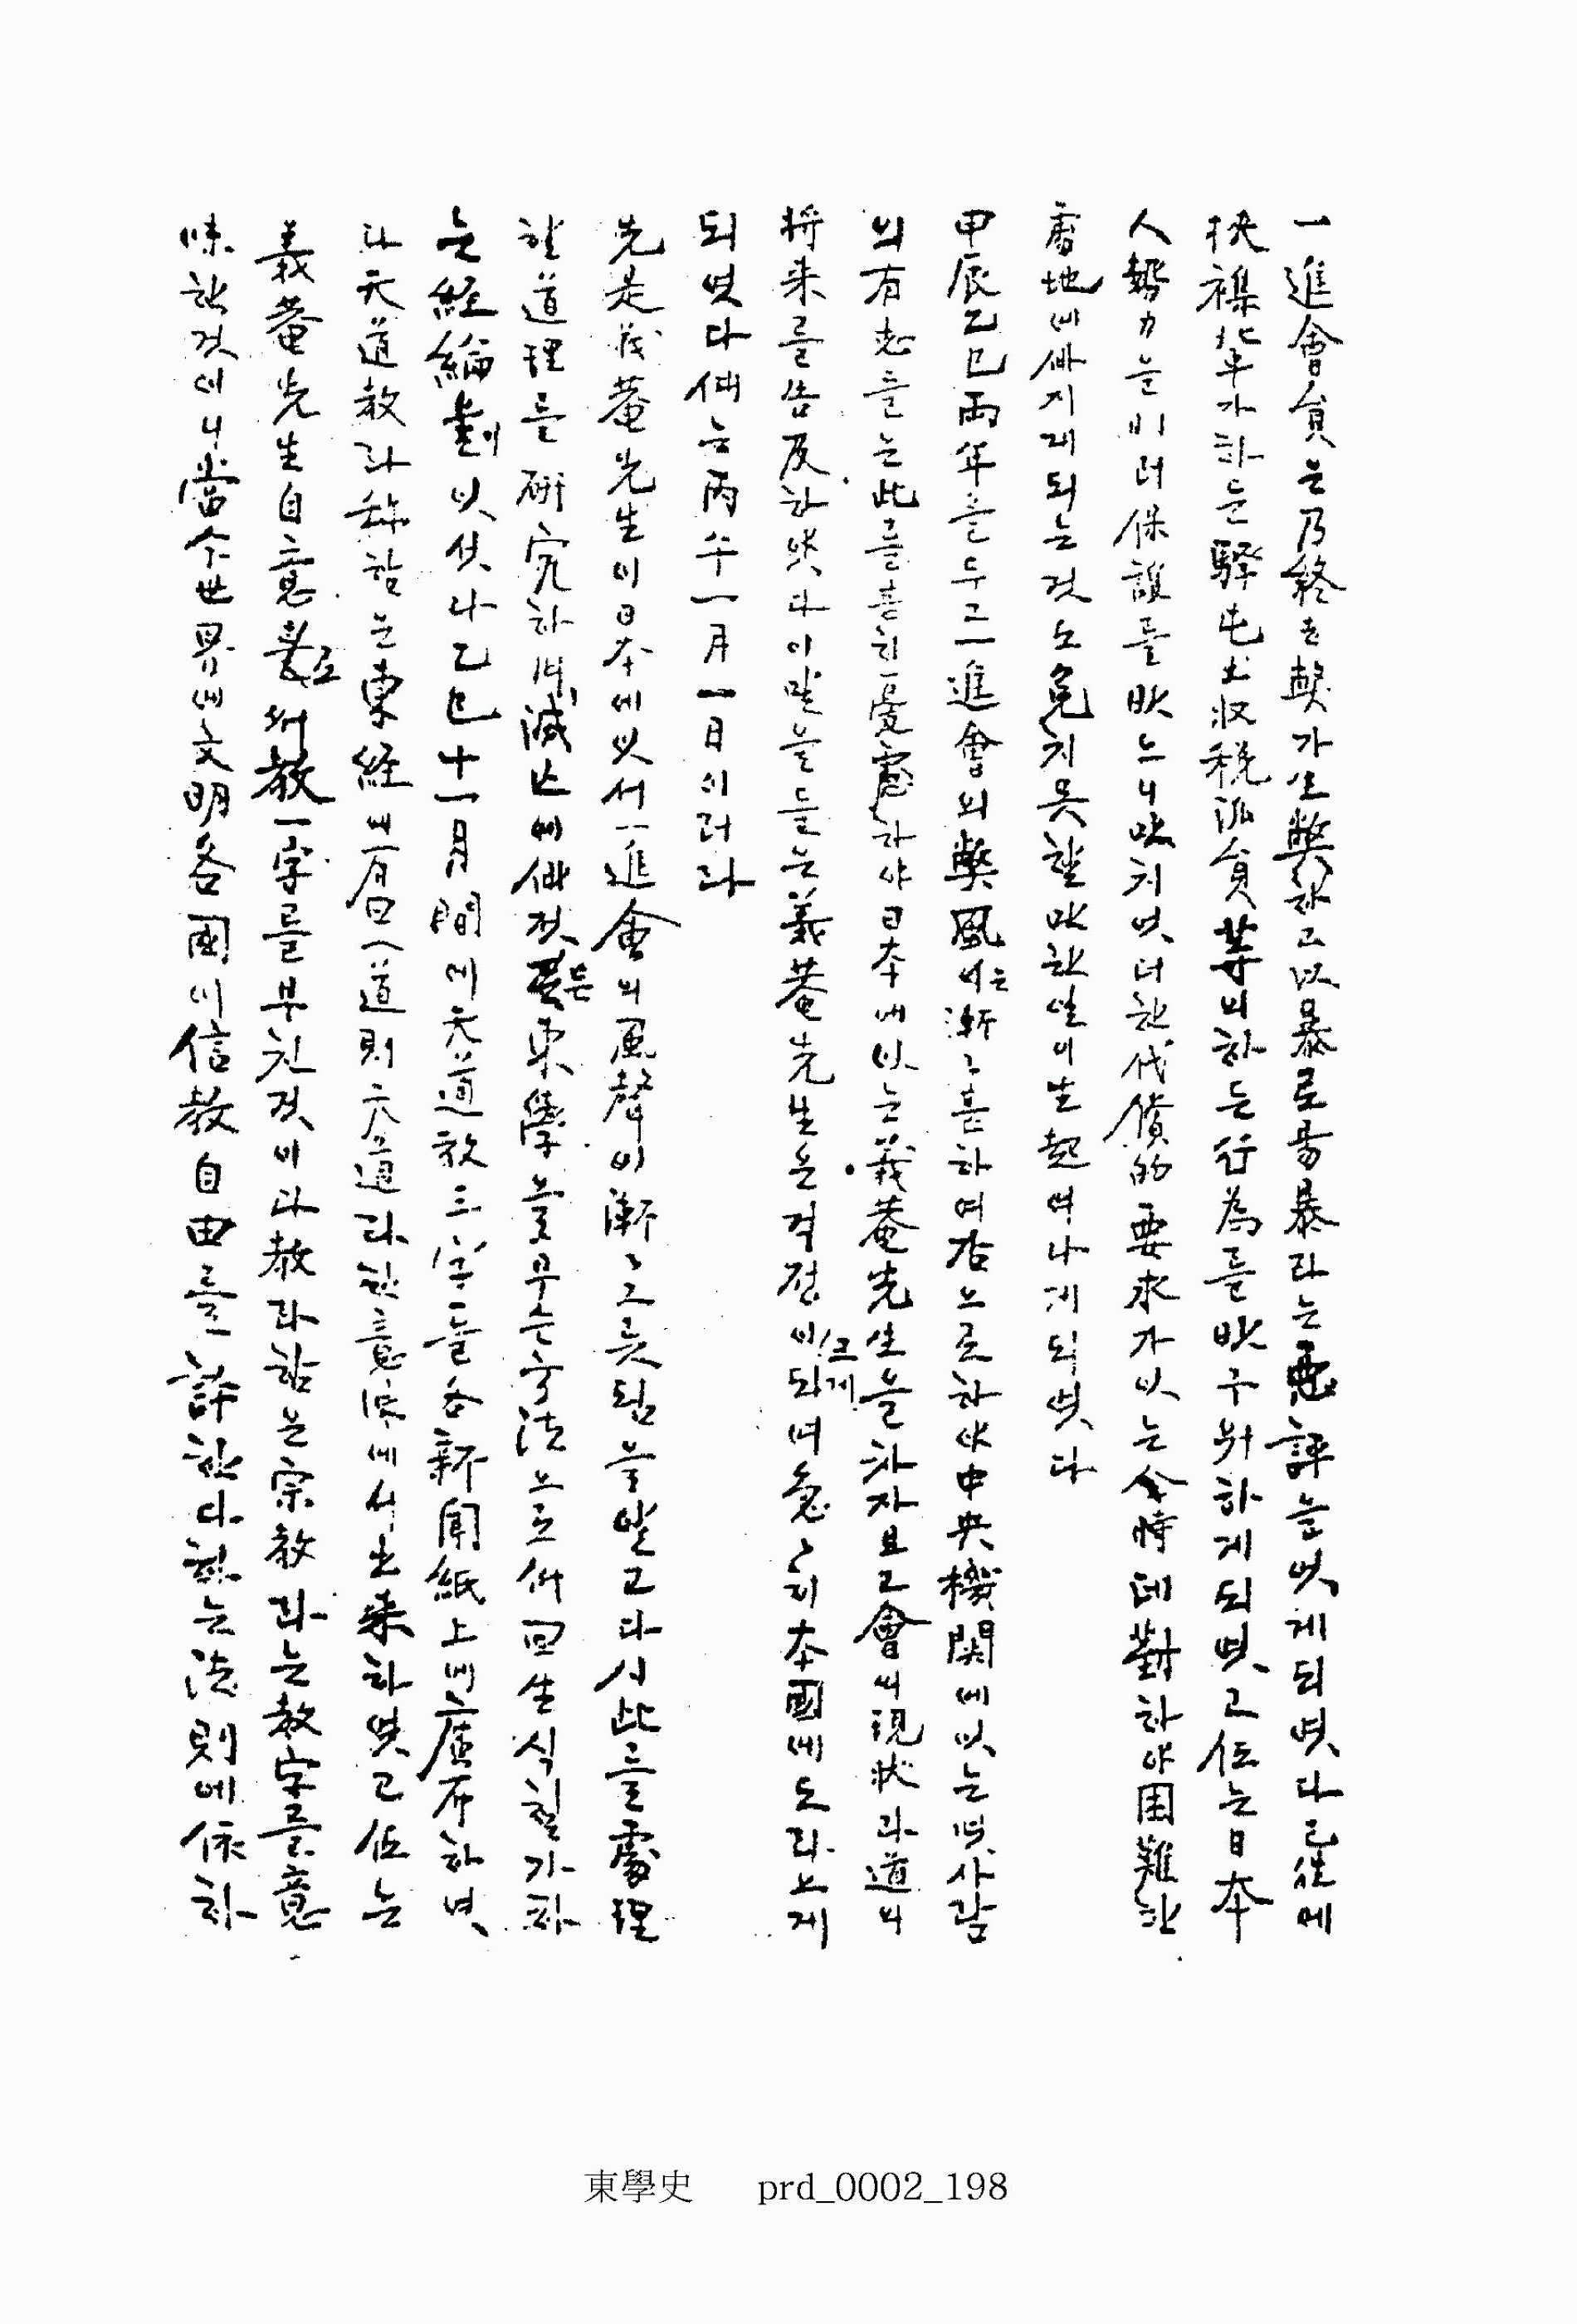 一進會員은乃終은弊가生弊하고以暴로易暴라는惡評을엇게되엿다已往에
挾襍輩가하든驛屯土收稅派員等의하는行爲를밧구워하게되엿고伍는日本
人勢力을비러保護를밧느니만치엇더한代償的要求가잇는今時대對하야困難한
處地에빠지게되는것도免치못할만한일이生起여나게되엿다
甲辰乙巳兩年을두고一進會의弊風이는漸々흔하여감으로하야中央機関에잇는멧사람
의有志들는此를흔히憂慮하야日本에잇는義菴先生을차자보고會의現状과道의
将来를告及하얏다이말을들은義菴先生은격정이크게되며急々히本國에도라오게
되엿다때는丙午一月一日이러라
先是義菴先生이日本에잇서一進會의風聲이漸々그릇됨을알고다시此를處理
할道理를硏究하며滅亡에빠젓든東學을무슨方法으로써回生식힐가하
는経綸이잇섯다乙巳十一月間에天道敎三字를各新聞紙上에廣布하엿
다天道敎라称함은東経에有曰(道則天道라한意味에서出来하엿고伍는
義菴先生自意로써敎一字를부친것이다敎라함은宗敎라는敎字를意
味한것이니當今世界에文明各國이信敎自由를許한다하는法則에依하
東學史 prd_0002_198